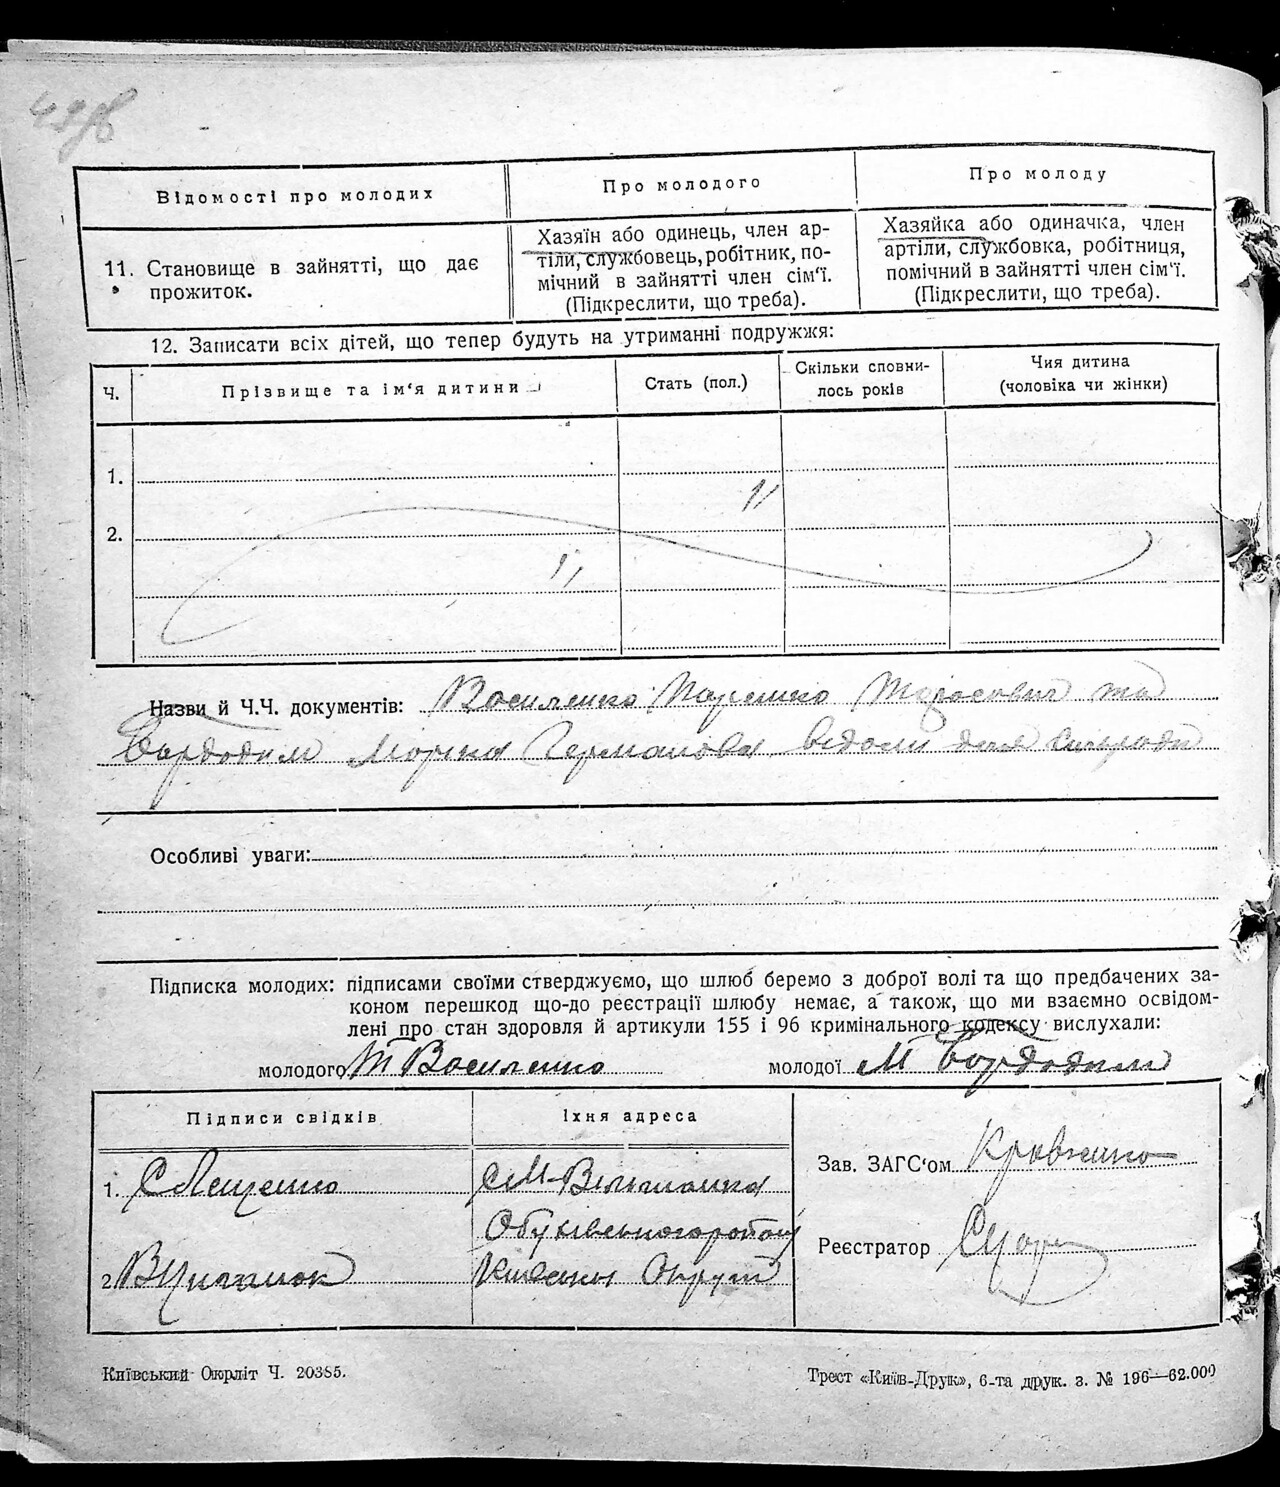 Відомості про молодих
Про молодого
Про молоду
11. Становище в зайнятті, що дає
прожиток.
Хазяїн або одинець, член ар-
тіли, службовець, робітник, по-
мічний в зайнятті член сім'ї.
(Підкреслити, що треба).
Хазяйка або одиначка, член
артіли, службовка, робітниця,
помічний в зайнятті член сім'ї.
(Підкреслити, що треба).
12. Записати всіх дітей, що тепер будуть на утриманні подружжя:
Ч.
Прізвище та ім'я дитини
Стать (пол.)
Скільки сповни-
лось років
Чия дитина
(чоловіка чи жінки)
1.
2.
Назви й Ч.Ч. документів: Василенко Тарасович та
Бардодим Германова
Особливі уваги:
Підписка молодих: підписами своїми стверджуємо, що шлюб беремо з доброї волі та що предбачених за-
коном перешкод що-до реєстрації шлюбу немає, а також, що ми взаємно освідом-
лені про стан здоровля й артикули 155 і 96 кримінального кодексу вислухали:
молодого Василенко
молодої М Бардодим
Підписи свідків
Їхня адреса
1. С Лещенко
Обухівського району
2.
Київськ Округ
Зав. ЗАГС'ом
Реєстратор
Київський Окрліт Ч. 20385.
Трест «Київ-Друк», 6-та друк. з. № 196—62.000